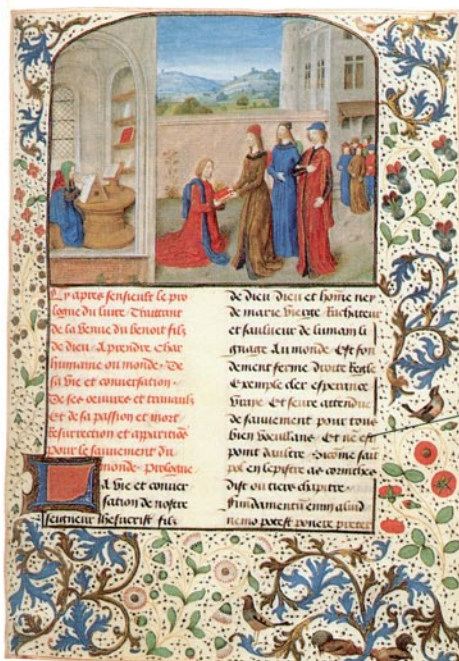 Cy apres sensieult le pro
logue du liure Traittant
de la venue du benoit filz
de dieu Aprendre char
humaine ou monde. De
sa vie et conuersation.
De ses oeuures et trauaulx
Et de sa passion et mort
resurrection et aparitiõs
pour le sauuement du
monde. Prologue
a vie et conuer
sation de nostre
seigneur ihesucrist filz
de dieu dieu et home ney
de marie vierge Rachateur
et sauueur de lumain li
gnage Au monde Est fon
dement ferme droite Regle
Exemple cler esperance
Vraye Et seure attendue
de sauuement pour tous
bien Et ne est
point daultre Sicõme saĩt
pol en lepistre as corinthes
dist ou tiers chapitre.
Fundamentũ enim aliud
nemo potest ponere preter